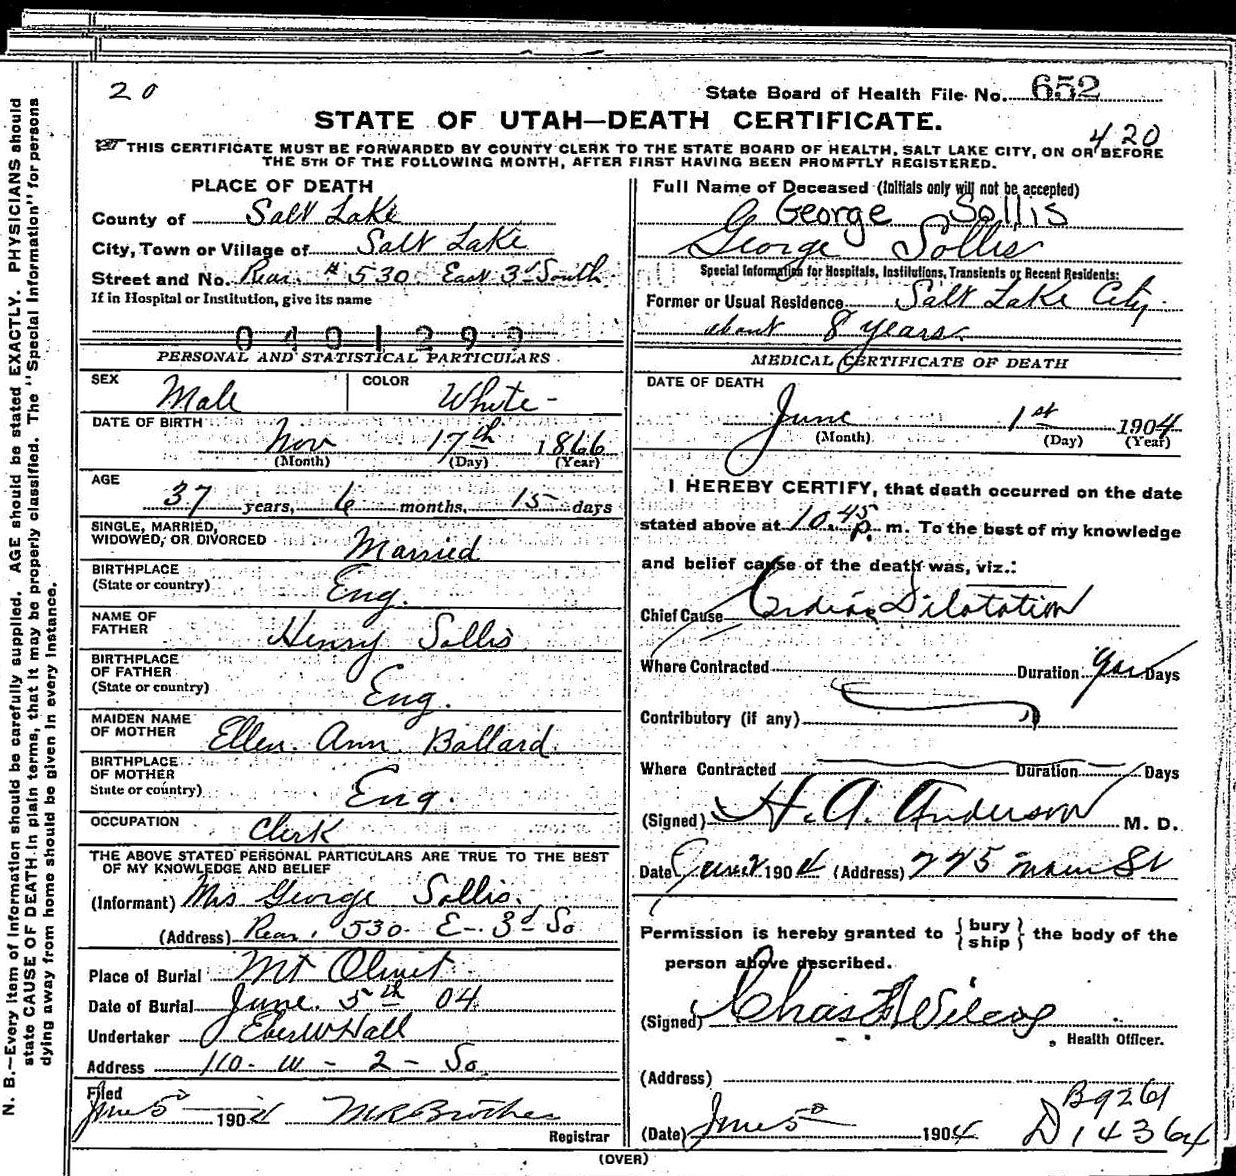 20
State Board of Health File No. 652
STATE OF UTAH—DEATH CERTIFICATE.
420
THIS CERTIFICATE MUST BE FORWARDED BY COUNTY CLERK TO THE STATE BOARD OF HEALTH, SALT LAKE CITY, ON OR BEFORE
THE 5TH OF THE FOLLOWING MONTH, AFTER FIRST HAVING BEEN PROMPTLY REGISTERED.
PLACE OF DEATH
County of Salt Lake
City, Town or Village of Salt Lake
Street and No. Rear. # 530. East 3d South
If in Hospital or Institution, give its name
0401292
PERSONAL AND STATISTICAL PARTICULARS
SEX Male COLOR White-
DATE OF BIRTH Nov 17th 1866
(Month) (Day) (Year)
AGE
37 years, 6 months, 15 days
SINGLE, MARRIED,
WIDOWED, OR DIVORCED Married
BIRTHPLACE
(State or country) Eng.
NAME OF
FATHER Henry Sollis
BIRTHPLACE
OF FATHER
(State or country) Eng.
MAIDEN NAME
OF MOTHER Ellen Ann Ballard
BIRTHPLACE
OF MOTHER
State or country) Eng.
OCCUPATION Clerk
THE ABOVE STATED PERSONAL PARTICULARS ARE TRUE TO THE BEST
OF MY KNOWLEDGE AND BELIEF
(Informant) Mrs George Sollis.
(Address) Rear. 530. E- 3d So
Place of Burial Mt Olivet
Date of Burial June. 5th 04
Undertaker Eber W Hall
Address 110- W- 2- So
Filed
June 5 1904
Registrar
Full Name of Deceased (Initials only will not be accepted)
George Sollis
George Sollis
Special Information for Hospitals, Institutions, Transients or Recent Residents:
Former or Usual Residence Salt Lake City.
about 8 years.
MEDICAL CERTIFICATE OF DEATH
DATE OF DEATH
June 1st 1904
(Month) (Day) (Year)
I HEREBY CERTIFY, that death occurred on the date
stated above at 10.45 p. m. To the best of my knowledge
and belief cause of the death was, viz.:
Chief Cause Cardiac Dilatation
Where Contracted Duration Days
Contributory (if any)
Where Contracted Duration Days
(Signed) H. A. Anderson M. D.
Date June 2 1904 (Address) 225 Main St
Permission is hereby granted to { bury
ship } the body of the
person above described.
(Signed) Chas F Wilcox
Health Officer.
(Address)
(Date) June 5 1904
B9261
D14364
(OVER)
N. B.—Every item of information should be carefully supplied. AGE should be stated EXACTLY. PHYSICIANS should
state CAUSE OF DEATH in plain terms, that it may be properly classified. The "Special Information" for persons
dying away from home should be given in every instance.